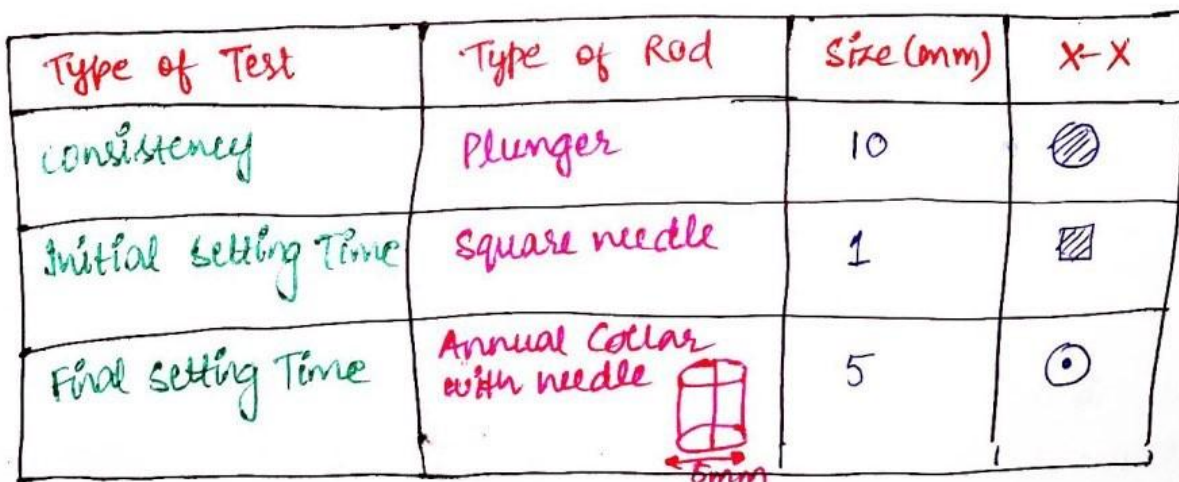 Type of Test Type of Rod Size (mm) X-X
Consistency Plunger 10
Initial setting Time Square needle 1
Final setting Time Annual Collar with needle 5
5mm